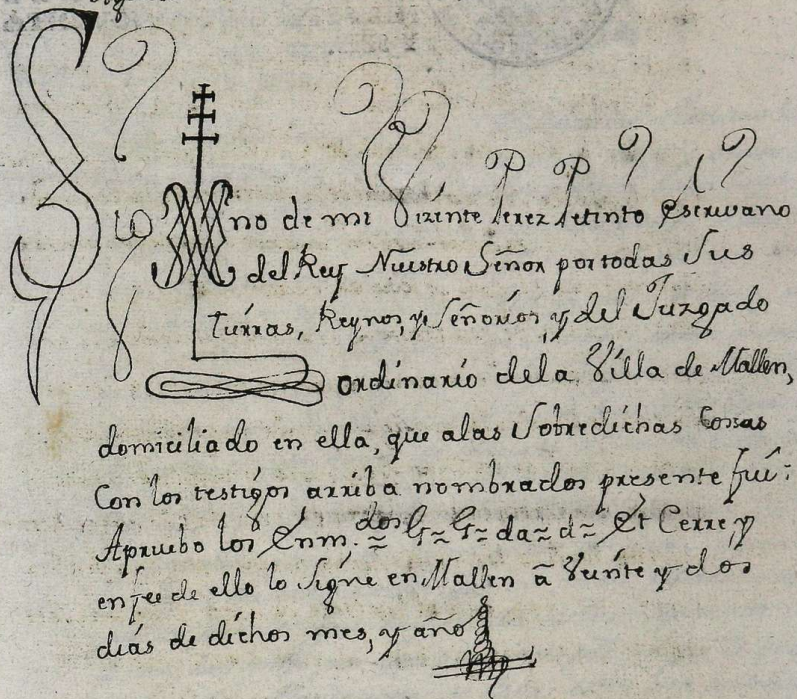 Sig no de mi Vizente Perez Petinto Escriuano
del Rey Nuestro Señor por todas sus
tierras, Reynos, y Señorios, y del Juzgado
ordinario dela Villa de Mallen,
domiciliado en ella, que alas Sobredichas Cosas
Con los testigos arriba nombrados presente fui:
Apruebo los Enm.dos G= G= da= d= Et Cerre, y
en fee de ello lo Signe en Mallen â Veinte y dos
dias de dichos mes, y año